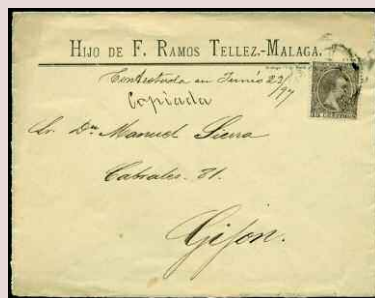 HIJO DE F. RAMOS TELLEZ.-MALAGA.
Contestada en Junio 22/97
Copiada
Sr. Dn. Manuel Sierra
Cabrales. 81.
Gijon.